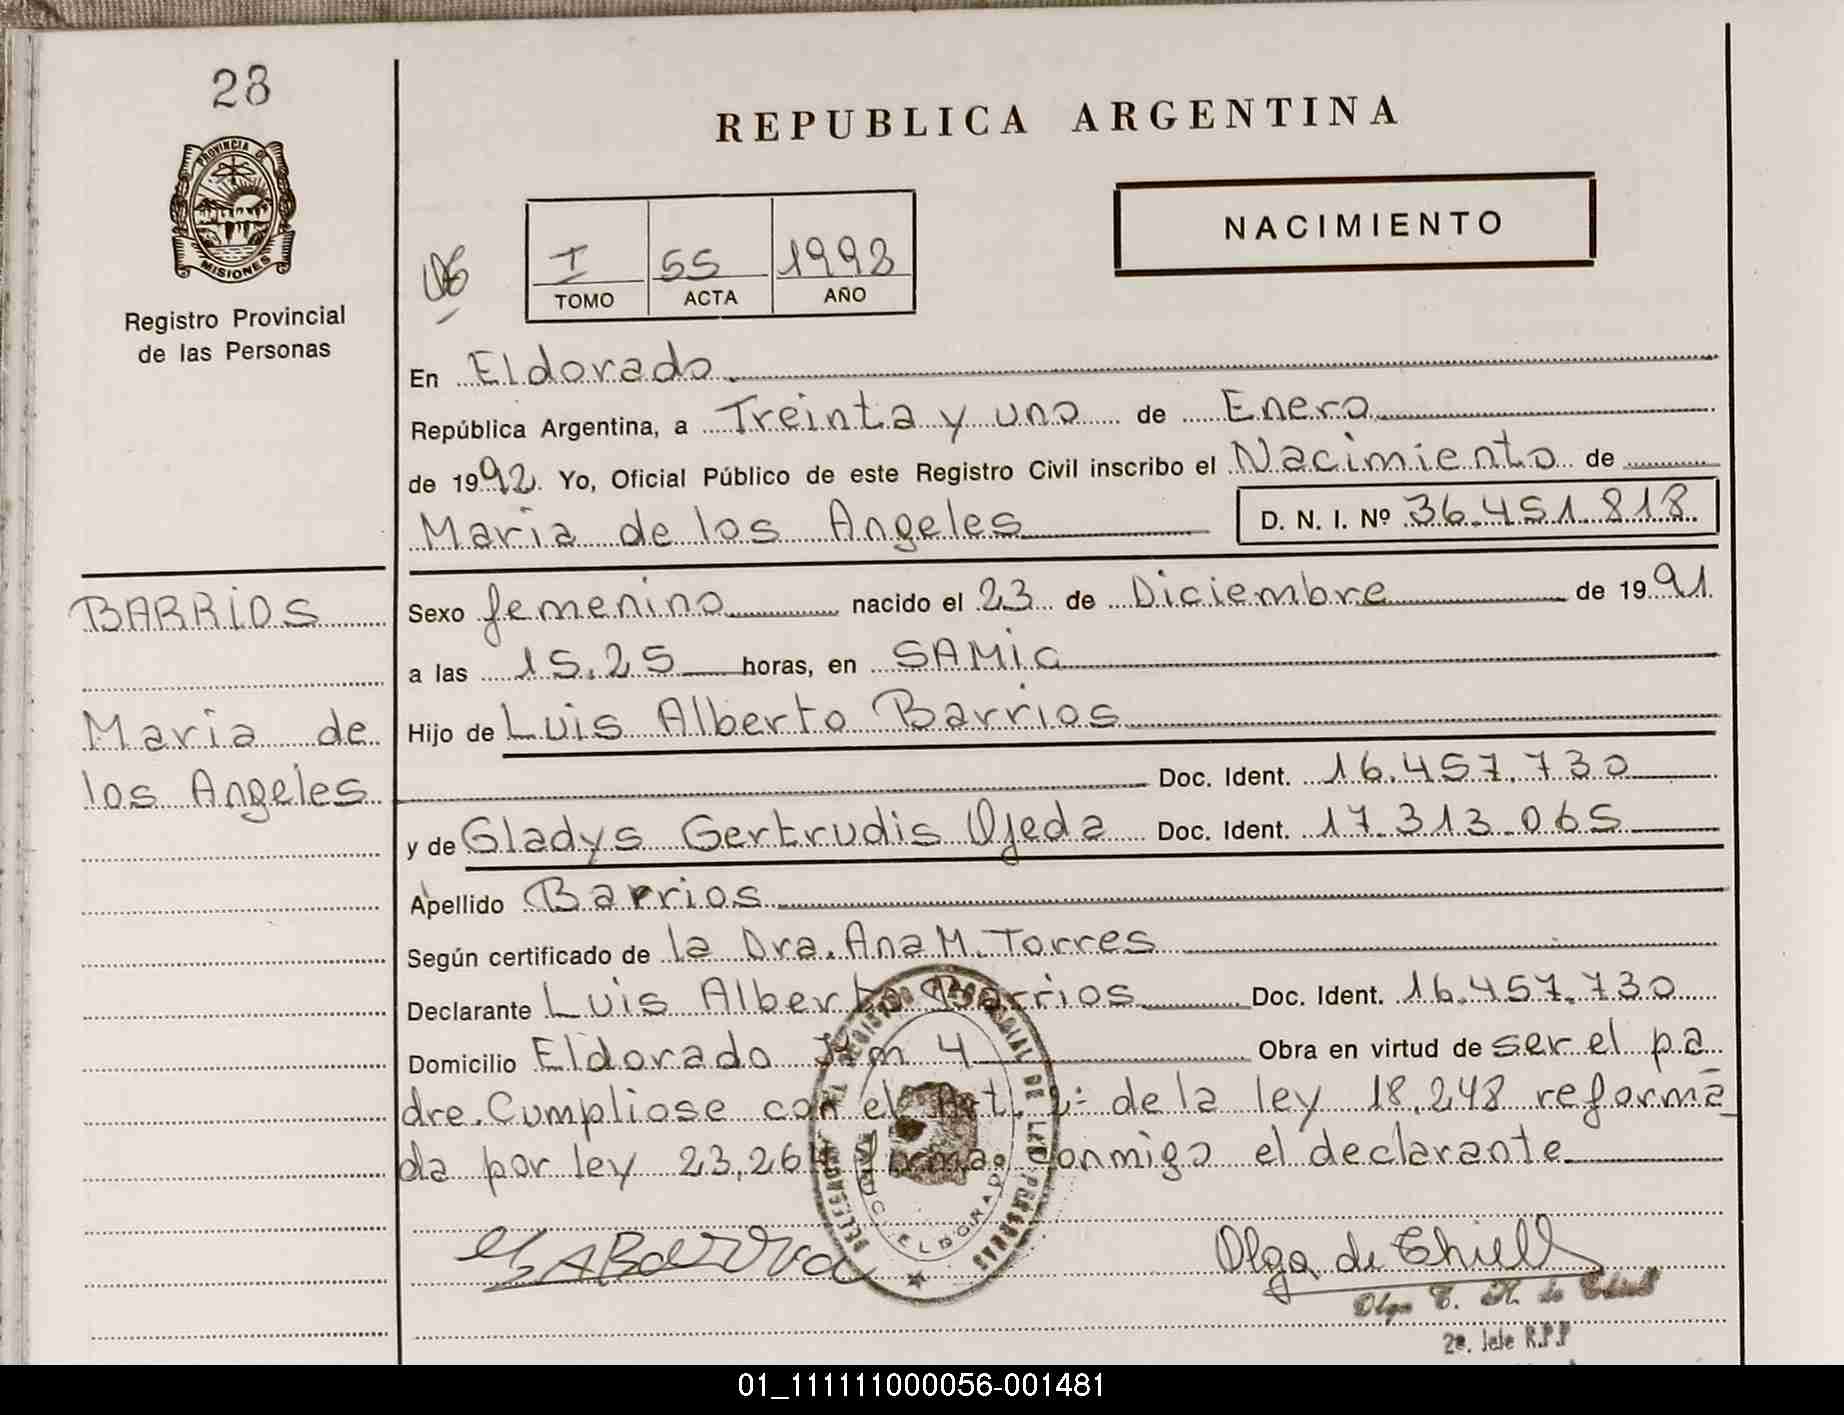 28
PROVINCIA DE
MISIONES
Registro Provincial
de las Personas
REPUBLICA ARGENTINA
NACIMIENTO
I 55 1992
TOMO ACTA AÑO
En Eldorado
República Argentina, a Treinta y uno de Enero
de 1992. Yo, Oficial Público de este Registro Civil inscribo el Nacimiento de
Maria de los Angeles D. N. I. Nº 36.451.818
BARRIOS
Maria de
los Angeles
Sexo femenino nacido el 23 de Diciembre de 1991
a las 15.25 horas, en SAMic
Hijo de Luis Alberto Barrios
Doc. Ident. 16.457.730
y de Gladys Gertrudis Ojeda Doc. Ident. 17.313.065
Apellido Barrios
Según certificado de la Dra. Ana M. Torres
Declarante Luis Alberto Barrios Doc. Ident. 16.457.730
Domicilio Eldorado Km 4 Obra en virtud de ser el pa
dre. Cumpliose con el Art. 2º de la ley 18.248 reforma
da por ley 23.264 Firma conmigo el declarante
REGISTRO PROVINCIAL DE LAS PERSONAS
ELDORADO
Olga de Chiell
2º. Jefe R.P.P
01_111111000056-001481